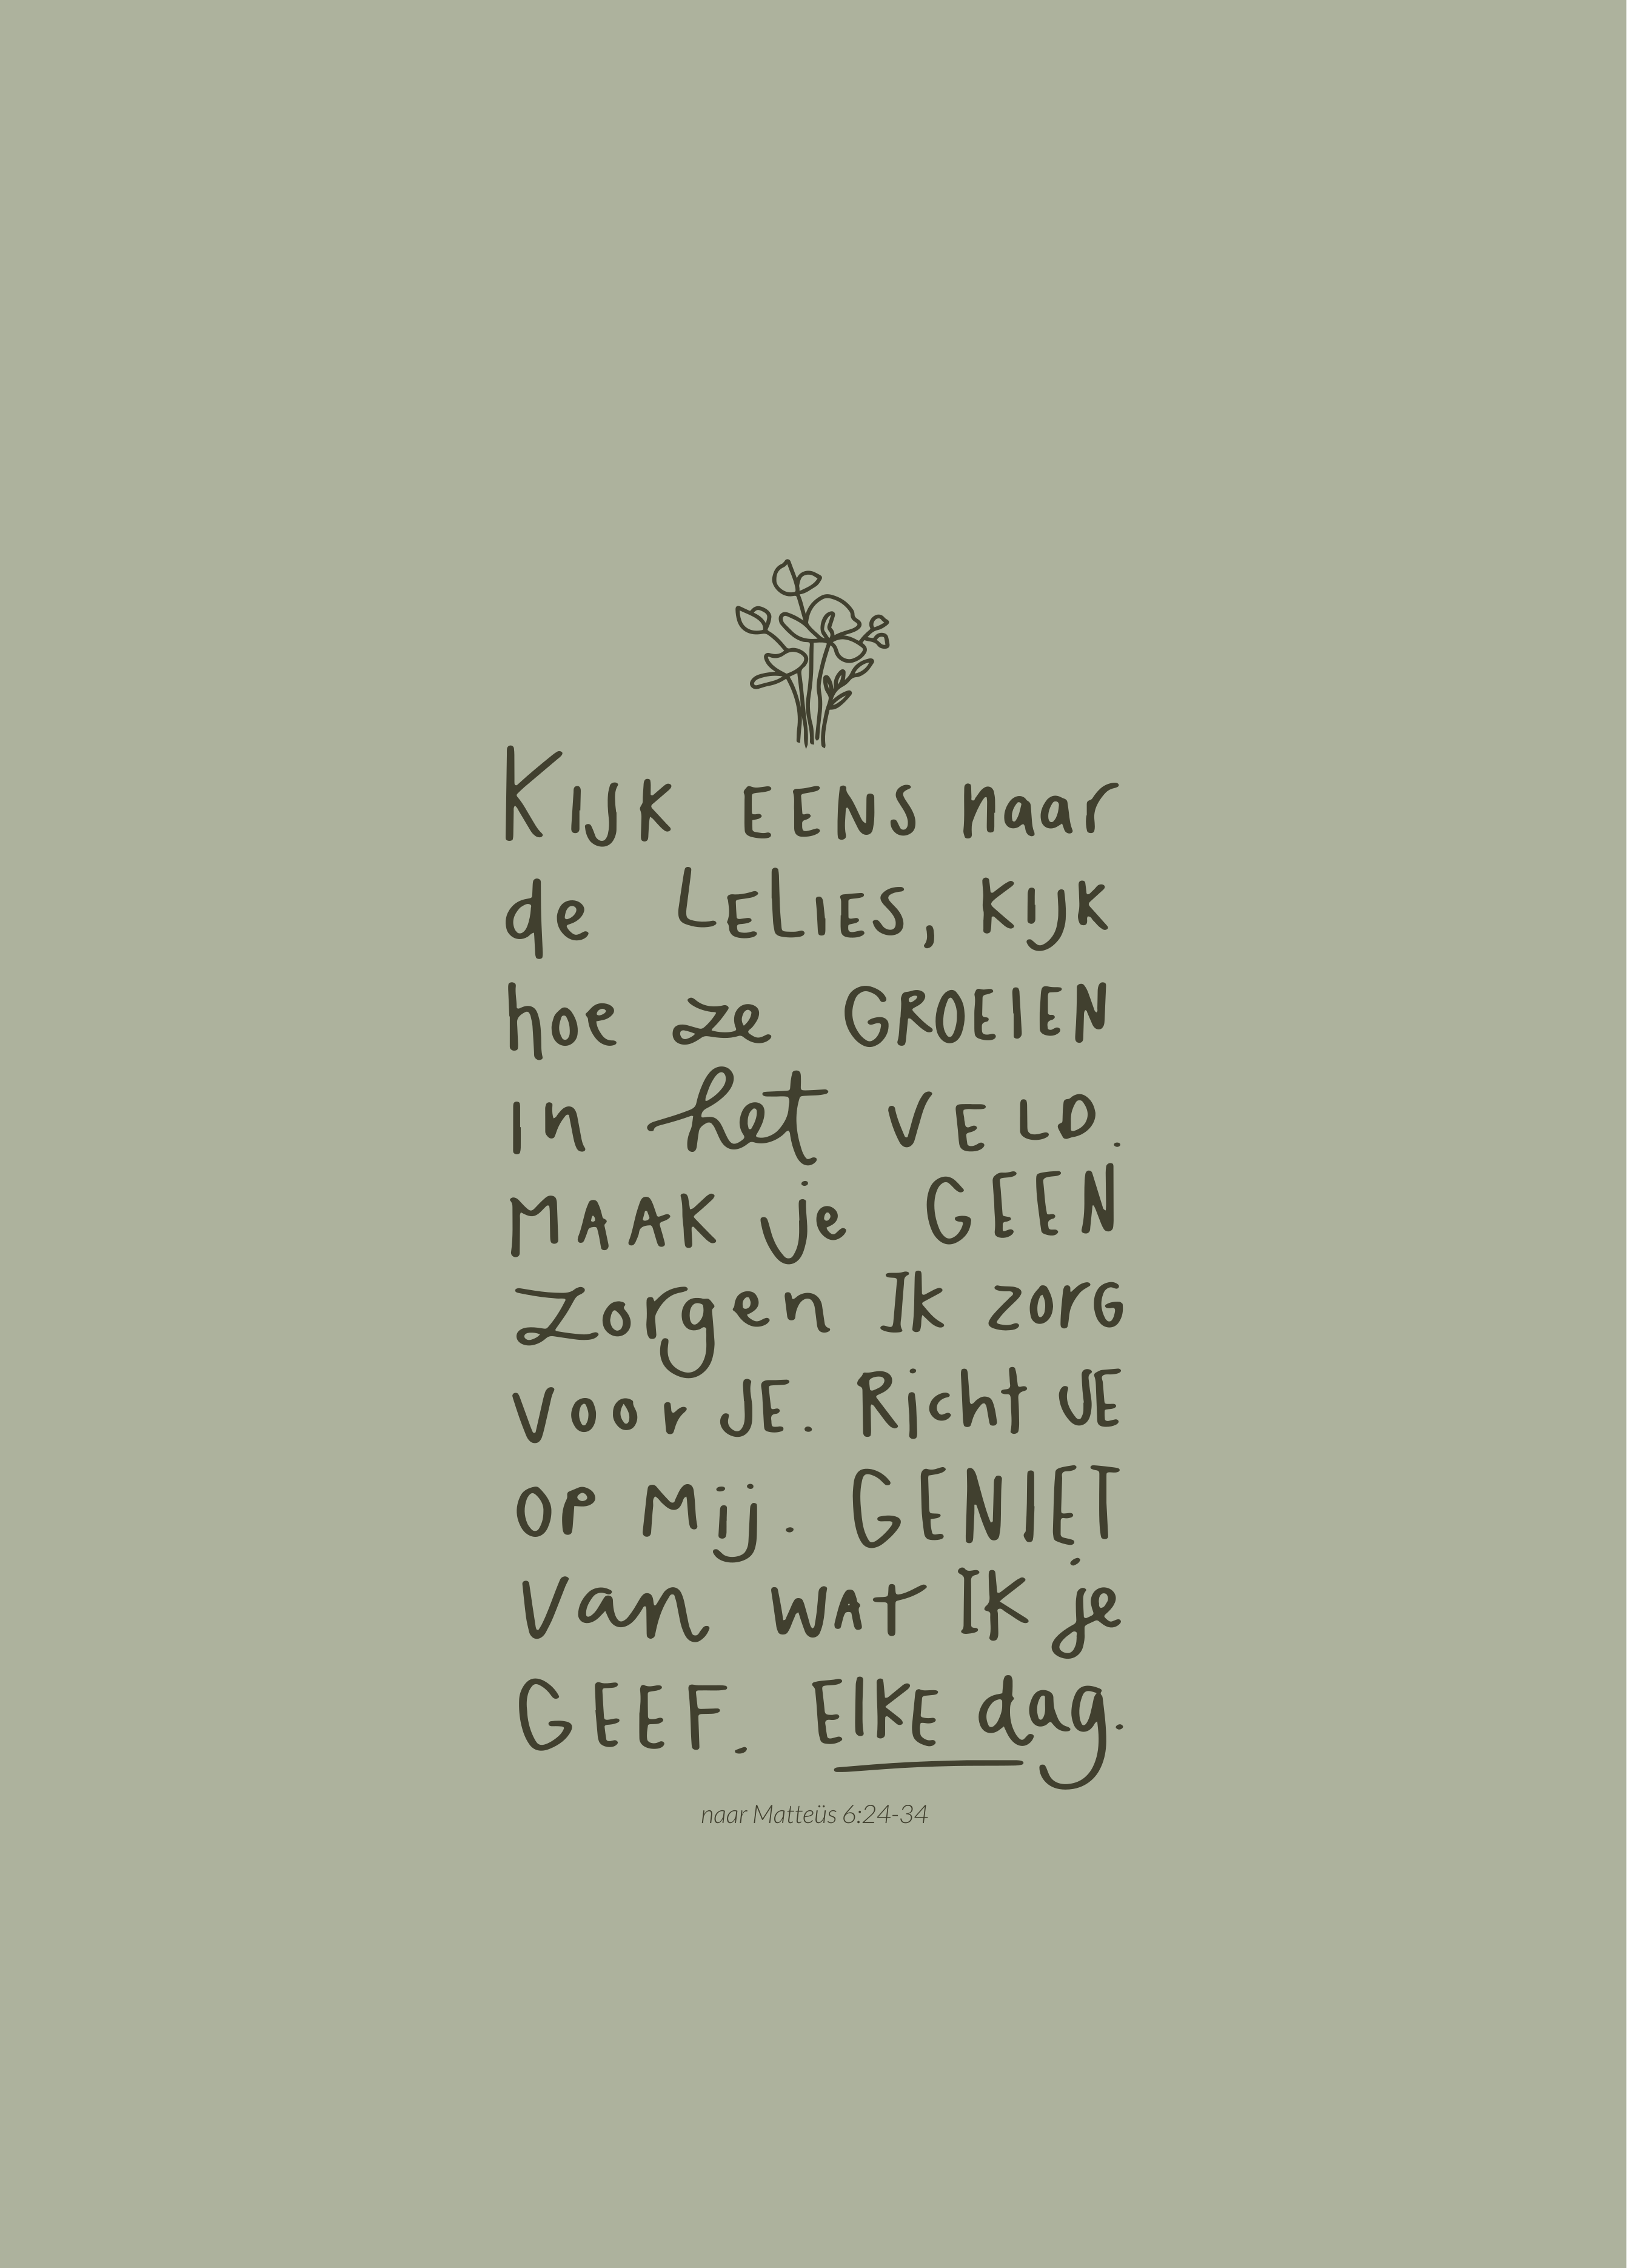 Kijk EENS naar
de LELIES, Kijk
hoe ze GROEIEN
in het VELD.
MAAK je GEEN
Zorgen Ik zorG
voor JE. Richt JE
op Mij. GENIET
van wAt IK je
GEEF. ElKE dag.
naar Matteüs 6:24-34